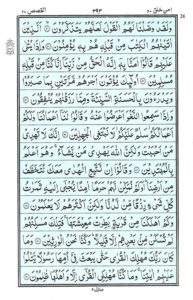 القصص ٢٨
٣٩٣
امن خلق ٢٠
28
وَلَقَدْ وَصَّلْنَا لَهُمُ الْقَوْلَ لَعَلَّهُمْ يَتَذَكَّرُوْنَ ۝ اَلَّذِيْنَ
اٰتَيْنٰهُمُ الْكِتٰبَ مِنْ قَبْلِهٖ هُمْ بِهٖ يُؤْمِنُوْنَ ۝ وَاِذَا يُتْلٰى
عَلَيْهِمْ قَالُوْٓا اٰمَنَّا بِهٖٓ اِنَّهُ الْحَقُّ مِنْ رَّبِّنَآ اِنَّا كُنَّا مِنْ قَبْلِهٖ
مُسْلِمِيْنَ ۝ اُولٰٓئِكَ يُؤْتَوْنَ اَجْرَهُمْ مَّرَّتَيْنِ بِمَا صَبَرُوْا
وَيَدْرَءُوْنَ بِالْحَسَنَةِ السَّيِّئَةَ وَمِمَّا رَزَقْنٰهُمْ يُنْفِقُوْنَ ۝
وَاِذَا سَمِعُوا اللَّغْوَ اَعْرَضُوْا عَنْهُ وَقَالُوْا لَنَآ اَعْمَالُنَا وَلَكُمْ
اَعْمَالُكُمْ سَلٰمٌ عَلَيْكُمْ لَا نَبْتَغِى الْجٰهِلِيْنَ ۝ اِنَّكَ لَا
تَهْدِىْ مَنْ اَحْبَبْتَ وَلٰكِنَّ اللّٰهَ يَهْدِىْ مَنْ يَّشَآءُ وَهُوَ اَعْلَمُ
بِالْمُهْتَدِيْنَ ۝ وَقَالُوْٓا اِنْ نَّتَّبِعِ الْهُدٰى مَعَكَ نُتَخَطَّفْ
مِنْ اَرْضِنَا اَوَلَمْ نُمَكِّنْ لَّهُمْ حَرَمًا اٰمِنًا يُّجْبٰٓى اِلَيْهِ ثَمَرٰتُ
كُلِّ شَىْءٍ رِّزْقًا مِّنْ لَّدُنَّا وَلٰكِنَّ اَكْثَرَهُمْ لَا يَعْلَمُوْنَ ۝
وَكَمْ اَهْلَكْنَا مِنْ قَرْيَةٍۭ بَطِرَتْ مَعِيْشَتَهَا فَتِلْكَ مَسٰكِنُهُمْ
لَمْ تُسْكَنْ مِّنْۢ بَعْدِهِمْ اِلَّا قَلِيْلًا وَكُنَّا نَحْنُ الْوٰرِثِيْنَ ۝
وَمَا كَانَ رَبُّكَ مُهْلِكَ الْقُرٰى حَتّٰى يَبْعَثَ فِىْٓ اُمِّهَا رَسُوْلًا يَّتْلُوْا
عَلَيْهِمْ اٰيٰتِنَا وَمَا كُنَّا مُهْلِكِى الْقُرٰٓى اِلَّا وَاَهْلُهَا ظٰلِمُوْنَ ۝
منزل ٥